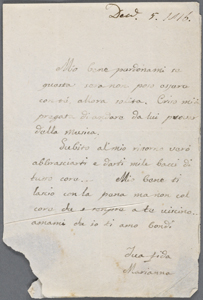 5. 1816.
Mio bene perdonami se
questa sera non posso essere
allora solita. Ciò mi
pregar di andare da lui presso
della Musica.
Subito al mio ritorno verò
abbracciarti e darti mille baci di
buon core... Mio bene ti
lascio con la pena ma non col
core che è sempre a te vicino,
amami che io ti amo
tua fida
Marianna